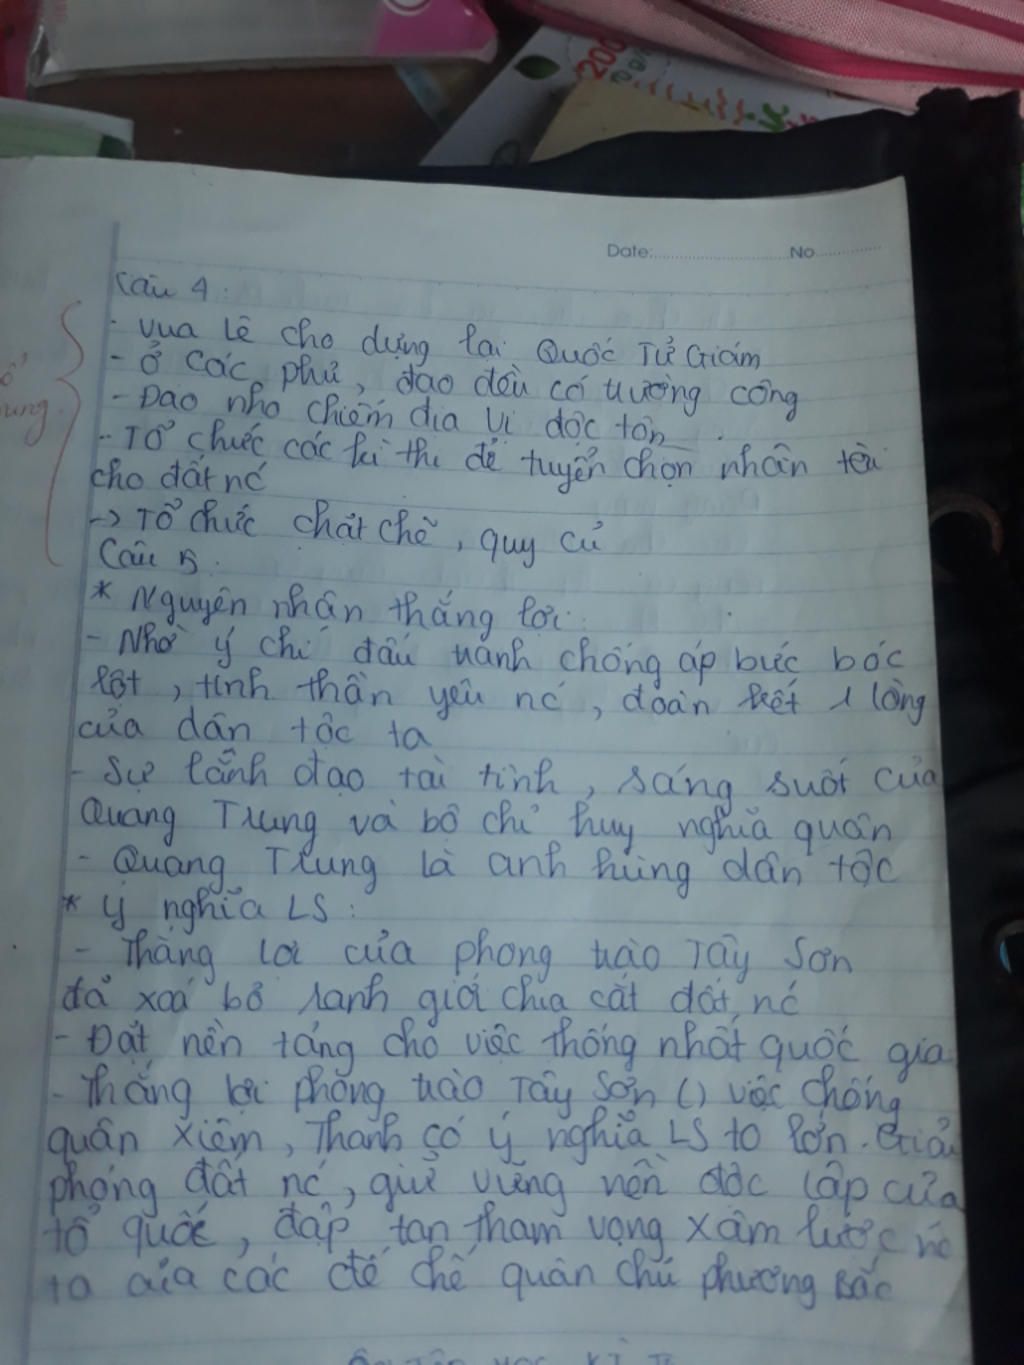 Date: No
Câu 4:
- Vua Lê cho dựng lại Quốc Tử Giám
- Ở các phủ, đạo đều có trường công
- Đạo nho chiếm địa vị độc tôn
- Tổ chức các kì thi để tuyển chọn nhân tài
cho đất nc
-> Tổ chức chặt chẽ, quy củ
Câu 5:
* Nguyên nhân thắng lợi:
- Nhờ ý chí đấu tranh chống áp bức bóc
lột, tinh thần yêu nc, đoàn kết 1 lòng
của dân tộc ta
- Sự lãnh đạo tài tình, sáng suốt của
Quang Trung và bộ chỉ huy nghĩa quân
- Quang Trung là anh hùng dân tộc
* Ý nghĩa LS:
- Thắng lợi của phong trào Tây Sơn
đã xoá bỏ ranh giới chia cắt đất nc
- Đặt nền tảng cho việc thống nhất quốc gia
- Thắng lợi phong trào Tây Sơn () việc chống
quân Xiêm, Thanh có ý nghĩa LS to lớn. Giải
phóng đất nc, giữ vững nền độc lập của
tổ quốc, đập tan tham vọng xâm lược nc
ta của các đế chế quân chủ phương Bắc